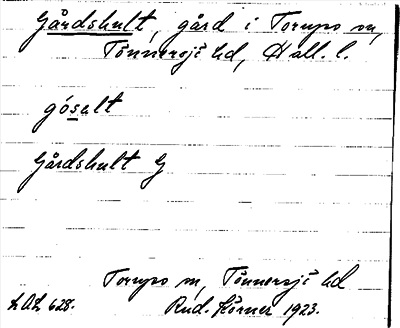 Gårdshult, gård i Torups sn,
Tönnersjö hd, Hall. l.
gósalt
Gårdshult G
Torups sn, Tönnersjö hd
LAL 628. Rud. Körner 1923.